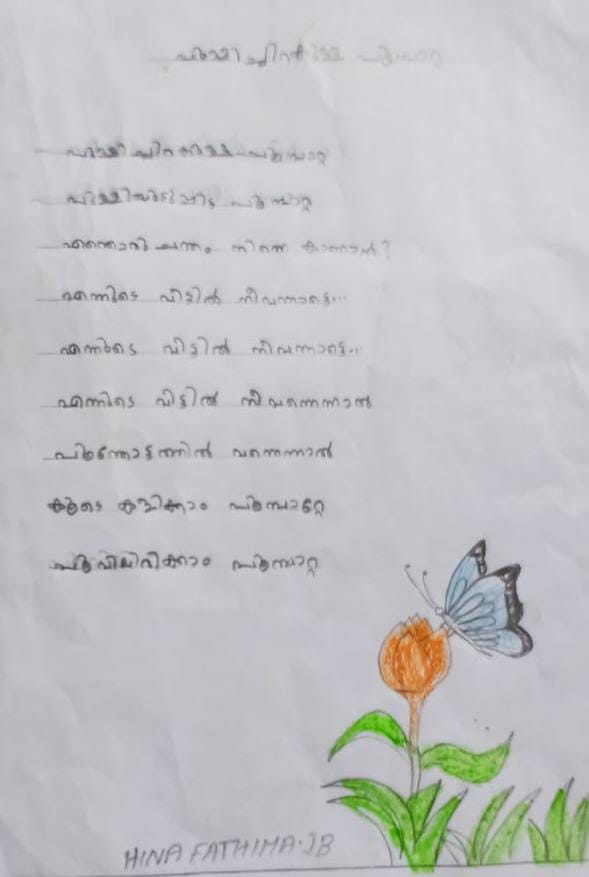 പുള്ളിച്ചിറകുള്ള പൂമ്പാറ്റ
പുള്ളിയുടുപ്പിട്ട പൂമ്പാറ്റ
എന്തൊരു ചന്തം നിന്നെ കാണാൻ?
എന്നുടെ വീട്ടിൽ നീവന്നാട്ടെ...
എന്നുടെ വീട്ടിൽ നീവന്നാട്ടെ...
എന്നുടെ വീട്ടിൽ നീ വന്നെന്നാൽ
പൂന്തോട്ടത്തിൽ വന്നെന്നാൽ
കൂടെ കളിക്കാം പൂമ്പാറ്റേ
പൂമ്പാറ്റ
HINA FATHIMA.JB